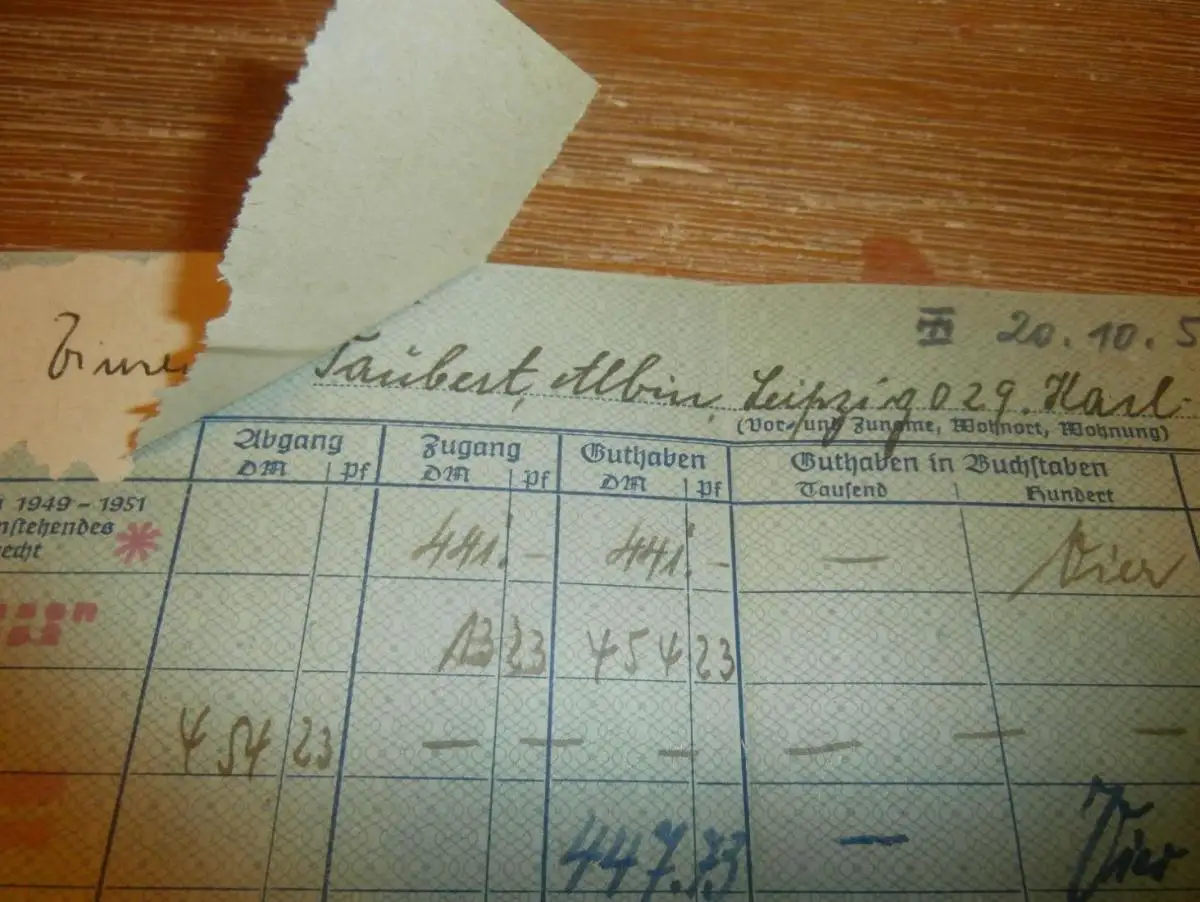 III 20.10.5
Taubert, Albin, Leipzig O 29. Karl-
(Vor- und Zuname, Wohnort, Wohnung)
Abgang Zugang Guthaben Guthaben in Buchstaben
DM Pf DM Pf DM Pf Tausend Hundert
1949 – 1951
nstehendes
echt
441. – 441. – — Vier
13 23 454 23
454 23 — — — — — —
447.73 — Vier